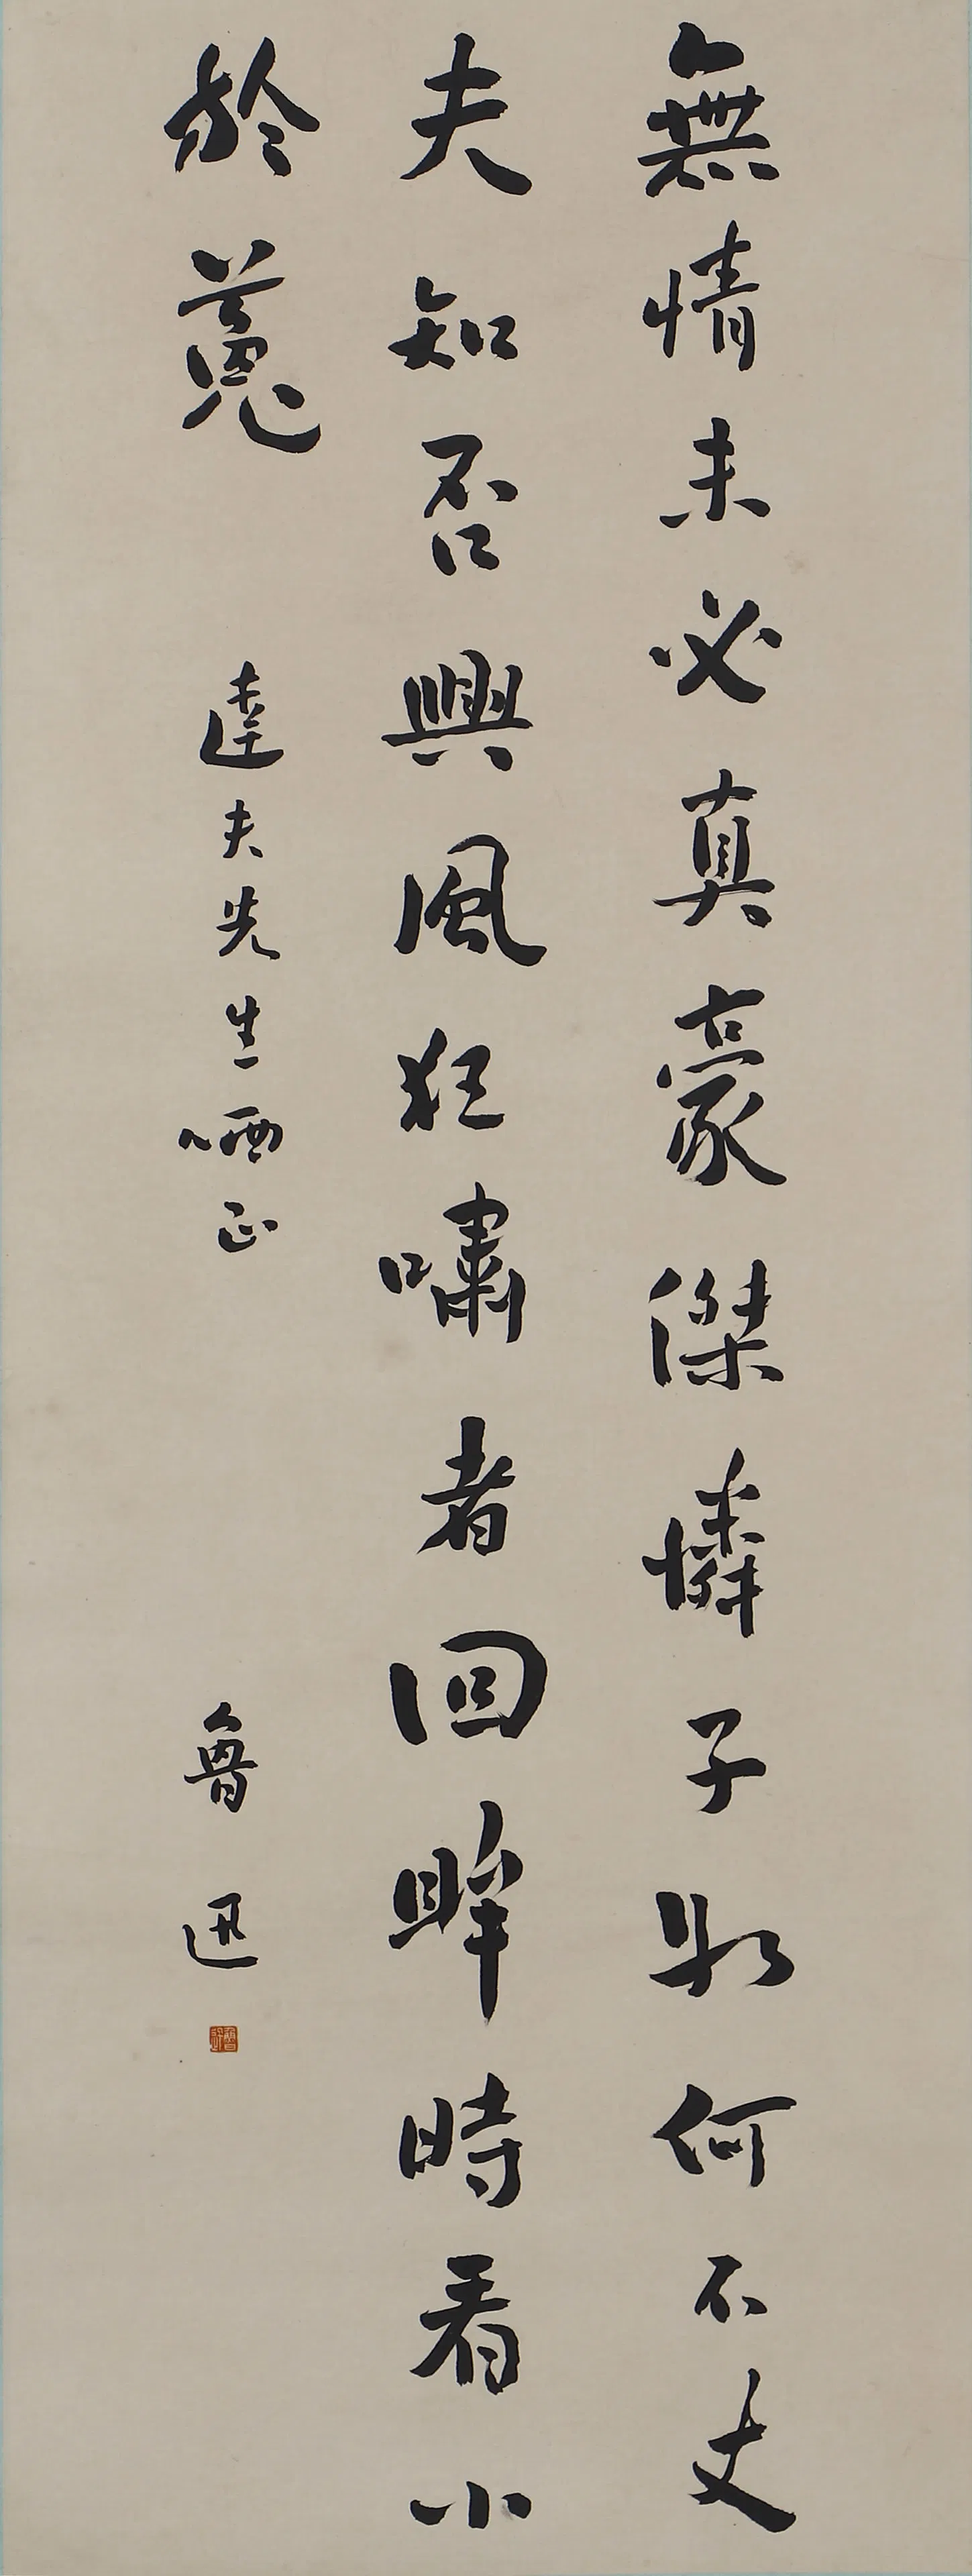 無情未必真豪傑憐子如何不丈
夫知否興風狂嘯者回眸時看小
於菟
達夫先生哂正
魯迅
魯迅